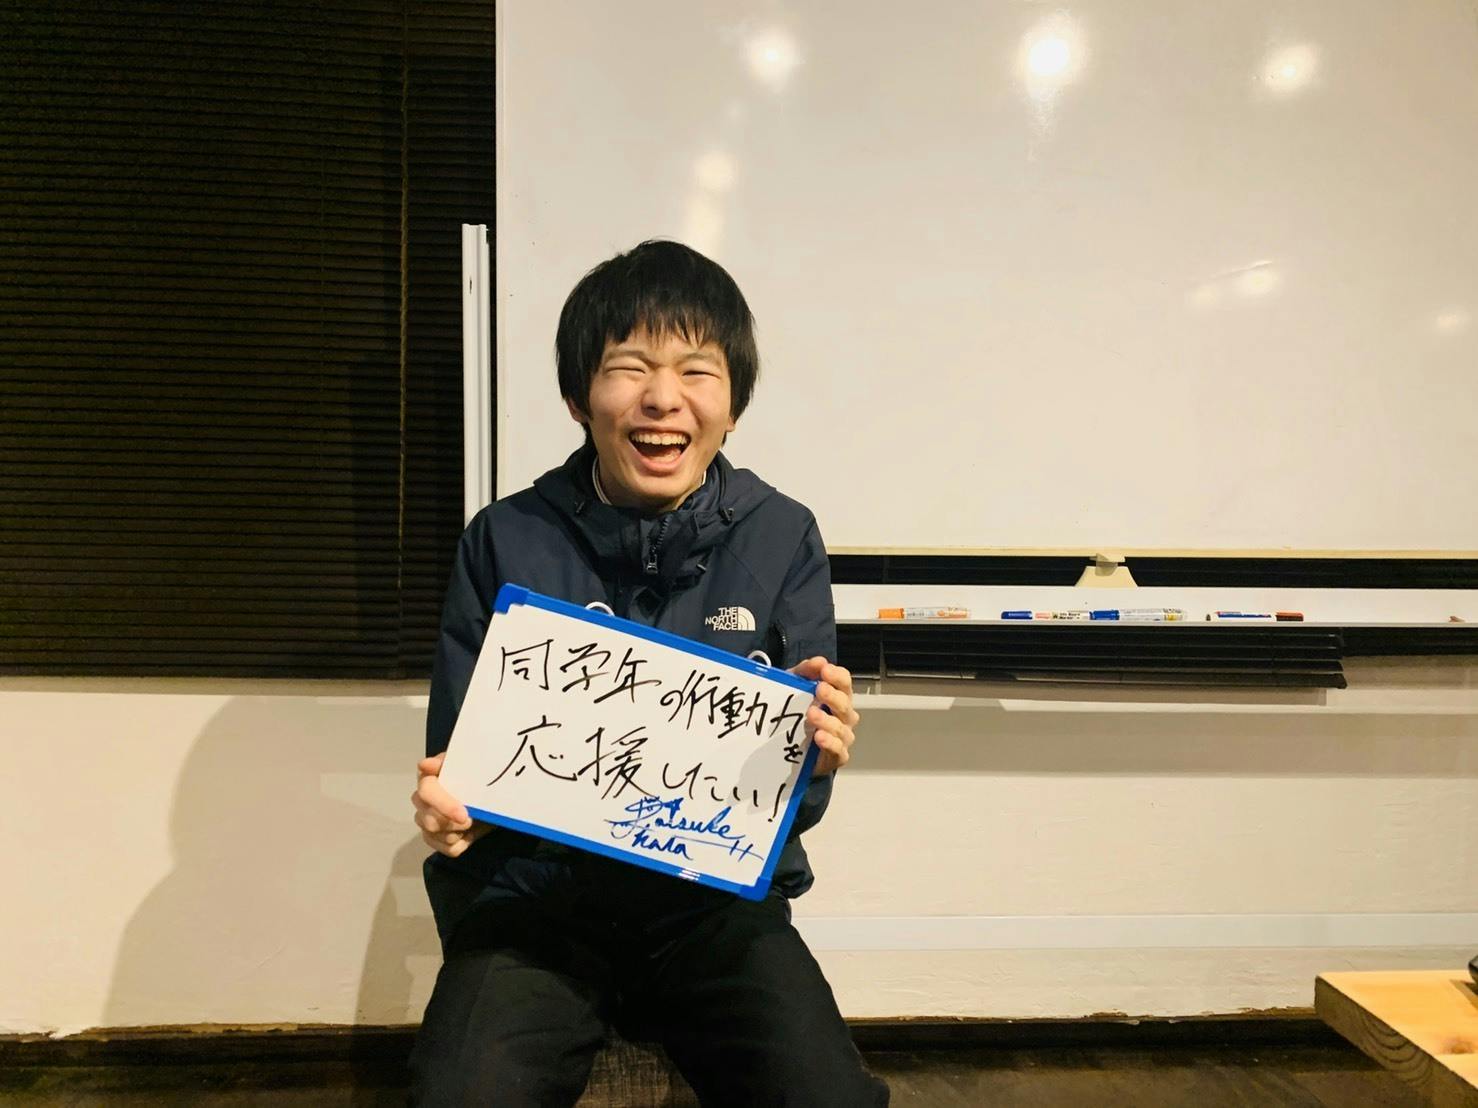 THE
NORTH
FACE
同学年の行動力を
応援したい!